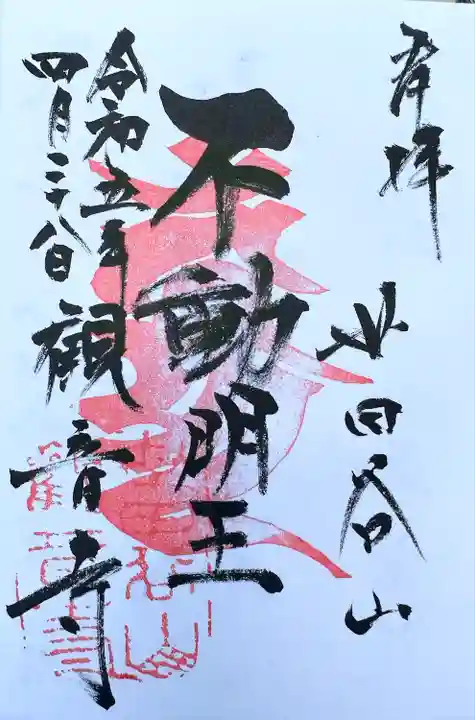 奉拝
世田谷山
不動明王
令和五年
四月二十八日
觀音寺